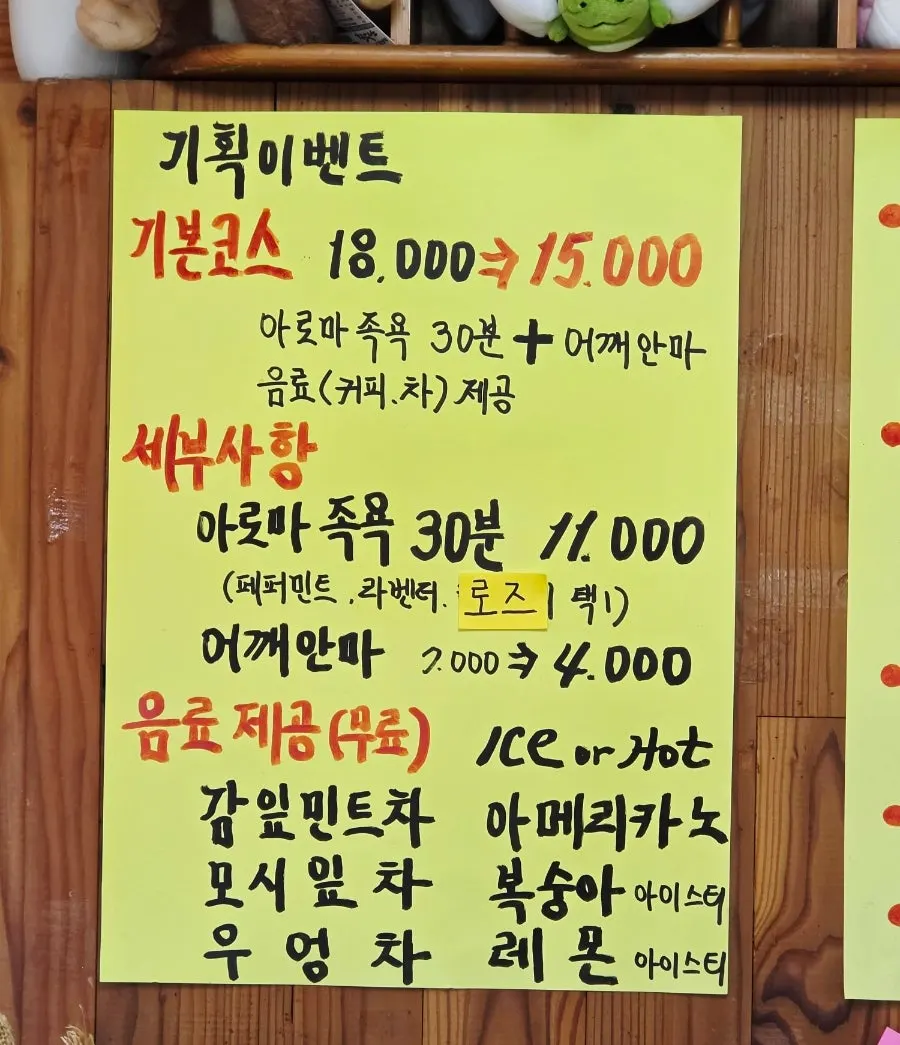 기획이벤트
기본코스 18.000⇒15.000
아롯마 족욕 30분 + 어깨안마
음료(커피.차) 제공
세부사항
아롯마 족욕 30분 11.000
(페퍼민트.라벤더. 로즈 택1)
어깨안마 7.000⇒4.000
음료 제공(무료) Ice or Hot
감잎민트차 아메리카노
모시잎차 복숭아 아이스티
우엉차 레몬 아이스티